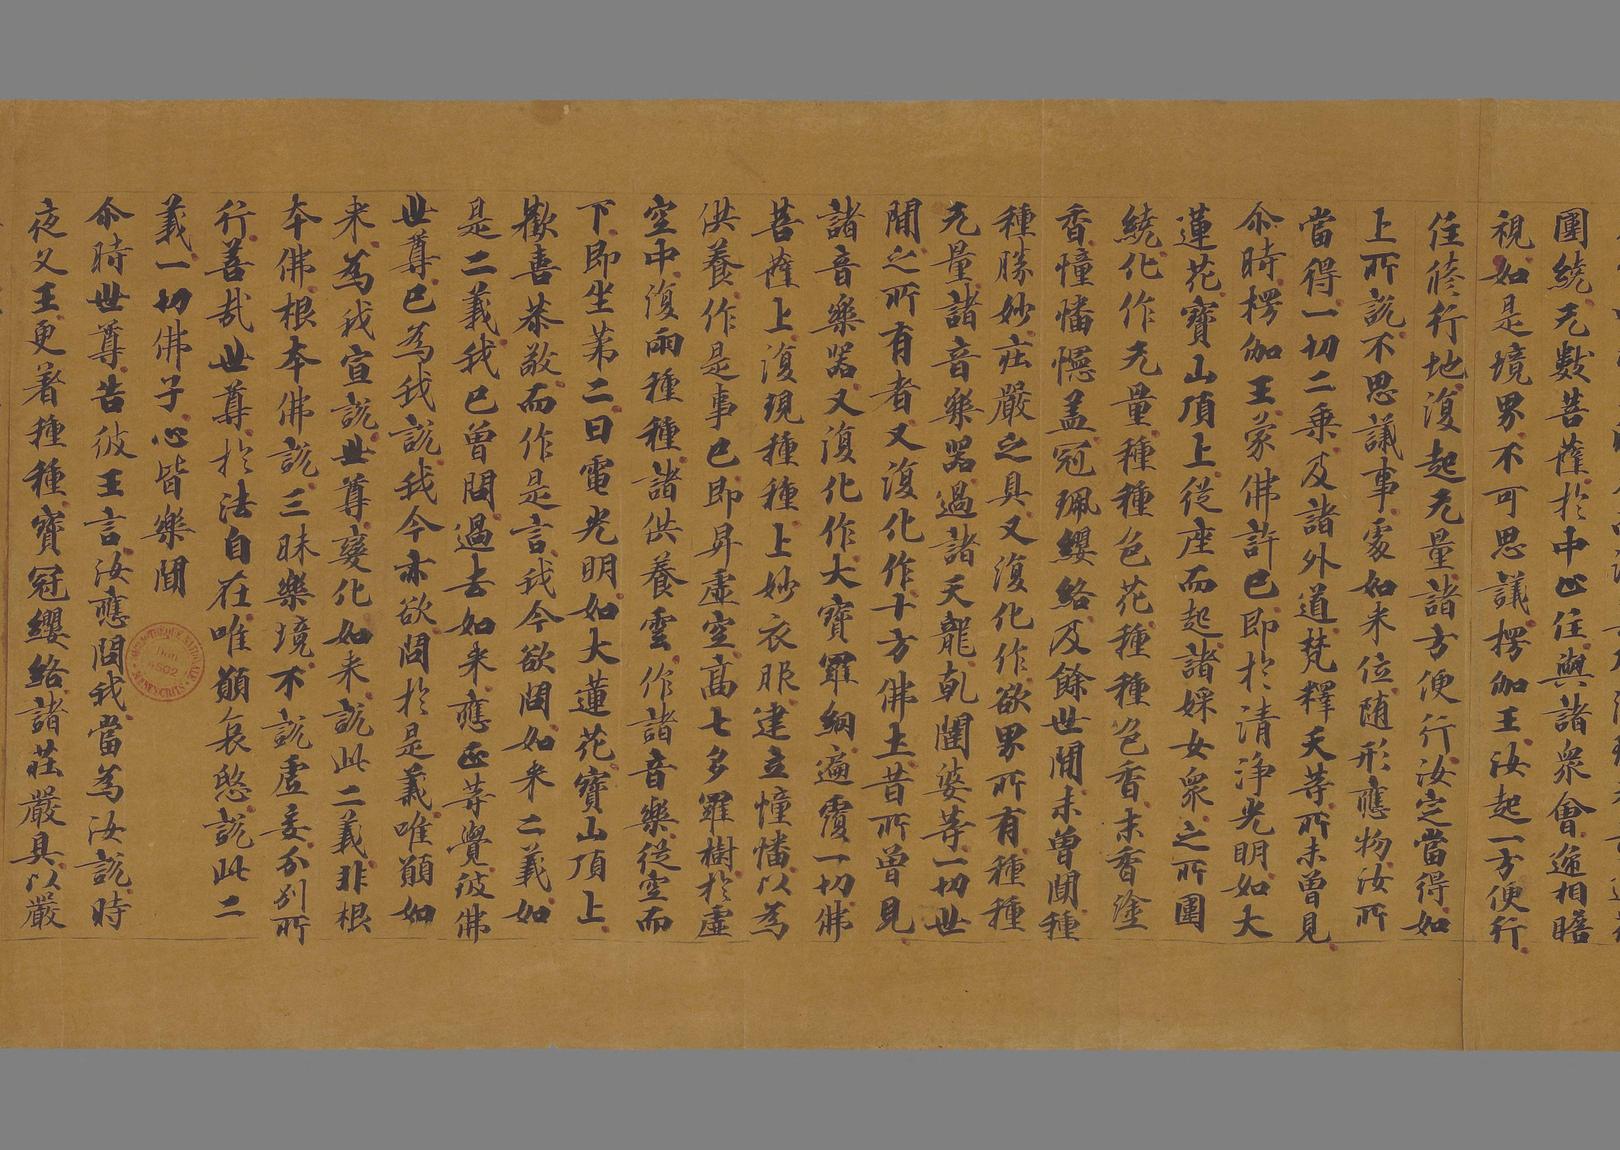 圍繞无數菩薩於中止住與諸衆會遞相瞻
視如是境界不可思議楞伽王汝起一方便行
住修行地復起无量諸方便行汝定當得如
上所說不思議事處如来位随形應物汝所
當得一切二乗及諸外道梵釋天等所未曾見
尒時楞伽王蒙佛許已即於清淨光明如大
蓮花寶山頂上從座而起諸婇女衆之所圍
繞化作无量種種色花種種色香末香塗
香幢幡幰盖冠珮纓絡及餘世間未曾聞種
種勝妙莊嚴之具又復化作欲界所有種種
无量諸音樂器過諸天龍乹闥婆等一切世
間之所有者又復化作十方佛土昔所曾見
諸音樂器又復化作大寶羅網遍覆一切佛
菩薩上復現種種上妙衣服建立幢幡以為
供養作是事已即昇虛空高七多羅樹於虛
空中復雨種種諸供養雲作諸音樂從空而
下即坐苐二日電光明如大蓮花寶山頂上
歡喜恭敬而作是言我今欲問如来二義如
是二義我已曾問過去如来應正等覺彼佛
世尊已為我說我今亦欲問於是義唯願如
来為我宣說世尊變化如来說此二義非根
本佛根本佛說三昧樂境不說虛妄分別所
行善哉世尊於法自在唯願哀愍說此二
義一切佛子心皆樂聞
尒時世尊告彼王言汝應問我當為汝說時
夜叉王更著種種寶冠纓絡諸莊嚴具以嚴